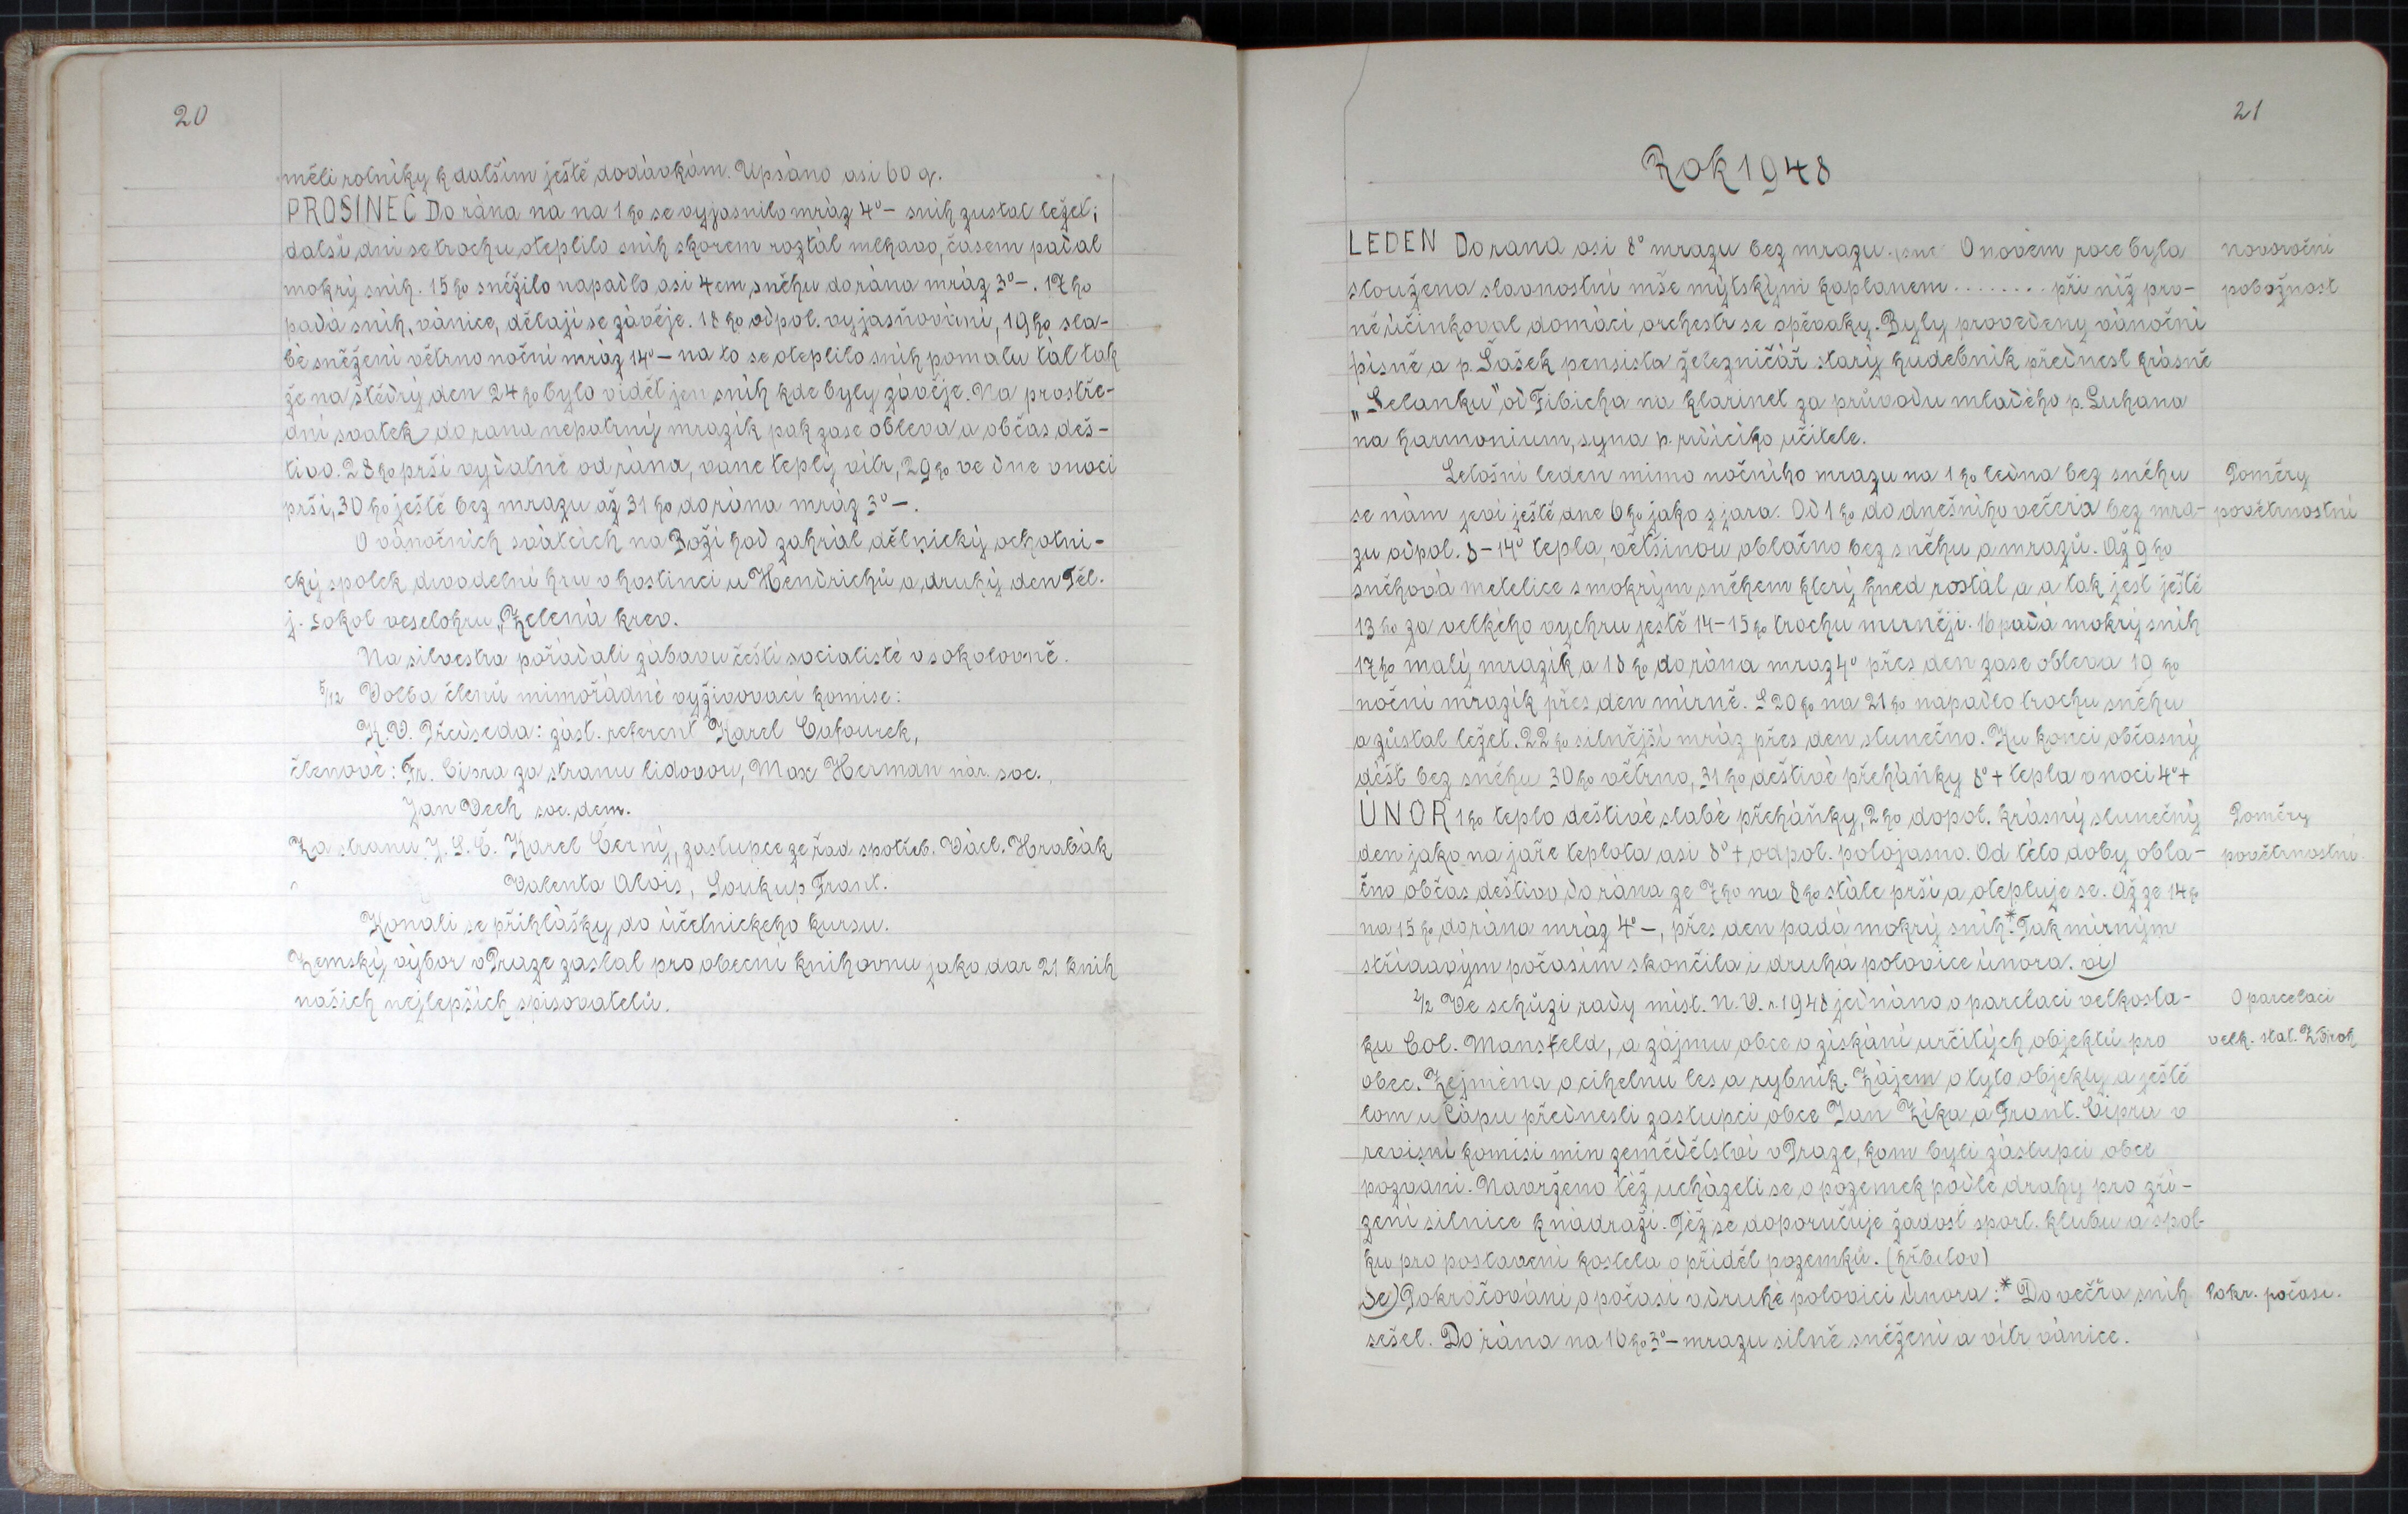 20
měli rolníky k dalším ještě dodávkám. Upsáno asi 60 q.
PROSINEC Do rána na na 1ho se vyjasnilo mráz 4°– sníh zustal ležet;
další dni se trochu oteplilo sníh skorem roztál mlhavo, časem padal
mokrý sníh. 15ho sněžilo napadlo asi 4cm sněhu do rána mráz 3°–. 17ho
padá sníh, vánice, dělají se závěje. 18ho odpol. vyjasňování, 19ho sla-
bé sněžení větrno noční mráz 14°– na to se oteplilo sníh pomalu tál tak
že na štědrý den 24ho bylo vidět jen sníh kde byly závěje. Na prostře-
dní svátek do rana nepatrný mrazík pak zase obleva a občas deš-
tivo. 28ho prší vydatně od rána, vane teplý vítr, 29ho ve dne v noci
prší, 30ho ještě bez mrazu až 31ho do rána mráz 3°–.
O vánočních svátcích na Boží hod zahrál dělnický ochotni-
cký spolek divadelní hru v hostinci u Hendrichů a druhý den Těl.
j. Sokol veselohru „Zelená krev.
Na silvestra pořádali zábavu čeští socialisté v sokolovně.
5/12 Volba členů mimořádné vyživovací komise:
K.V. Předseda: zást. referent Karel Cafourek,
členové: Fr. Cipra za stranu lidovou, Max Herman nár. soc.,
Jan Vech soc. dem.
Za stranu J. S. Č. Karel Černý, zastupce ze řad spotřeb. Václ. Hrabák
Valenta Alois, Soukup Frant.
Konali se přihlášky do účetnickeho kursu.
Zemský výbor v Praze zaslal pro obecní knihovnu jako dar 21 knih
našich nejlepších spisovatelů.
21
Rok 1948
LEDEN Do rana asi 8° mrazu bez mrazu. O novém roce byla
novoroční
sloužena slavnostní mše mýtským kaplanem ........ při níž pro-
pobožnost
ně účinkoval domácí orchestr se zpěvaky. Byly provedeny vánoční
písně a p. Šašek pensista železničář starý hudebník přednesl krásně
„Selanku" od Fibicha na klarinet za průvodu mladého p. Luhana
na harmonium, syna p. řídícího učitele.
Letošní leden mimo nočního mrazu na 1ho ledna bez sněhu
Poměry
se nám jeví ještě dne 6ho jako z jara. Od 1ho do dnešního večera bez mra-
povětrnostní
zu odpol. 8–14° tepla, většinou oblačno bez sněhu a mrazů. Až 9ho
sněhová metelice s mokrým sněhem který hned rostál a a tak jest ještě
13ho za velkého vychru jestě 14–15ho trochu mirněji. 16 padá mokrý sníh
17ho malý mrazík a 18ho do rána mraz 4° přes den zase obleva 19ho
noční mrazík přes den mírně. S 20ho na 21ho napadlo trochu sněhu
a zůstal ležet. 22ho silnější mráz přes den slunečno. Ku konci občasný
déšť bez sněhu 30ho větrno, 31ho deštivé přeháňky 8°+ tepla v noci 4°+
ÚNOR 1ho teplo deštivé slabé přeháňky, 2ho dopol. krásný slunečný
Poměry
den jako na jaře teplota asi 8°+ odpol. polojasno. Od této doby obla-
povětrnostní
čno občas deštivo do rána ze 7ho na 8ho stále prší a otepluje se. Až ze 14ho
na 15ho do rána mráz 4°–, přes den padá mokrý sníh.* Tak mírným
střídavým počasím skončila i druhá polovice února.
2/2 Ve schůzi rady míst. N.V. r. 1948 jednáno o parcelaci velkosta-
O parcelaci
ku Col. Mansfeld, a zájmu obce o získání určitých objektů pro
velk. stat. Zbiroh
obec. Zejména o cihelnu les a rybník. Zájem o tyto objekty a ještě
lom u Čápu přednesli zastupci obce Jan Zíka a Frant. Cipra v
revisní komisi min zemědělství v Praze, kam byli zástupci obce
pozvani. Navrženo též ucházeti se o pozemek podle drahy pro zří-
zení silnice k nádraží. Též se doporučuje žadost sport. klubu a spol-
ku pro postavení kostela o příděl pozemků. (hřbitov)
Pokračování o počasí v druhé polovici února:* Do večera sníh
Pokr. počasí.
sešel. Do rána na 16ho 3°– mrazu silné sněžení a vítr vánice.